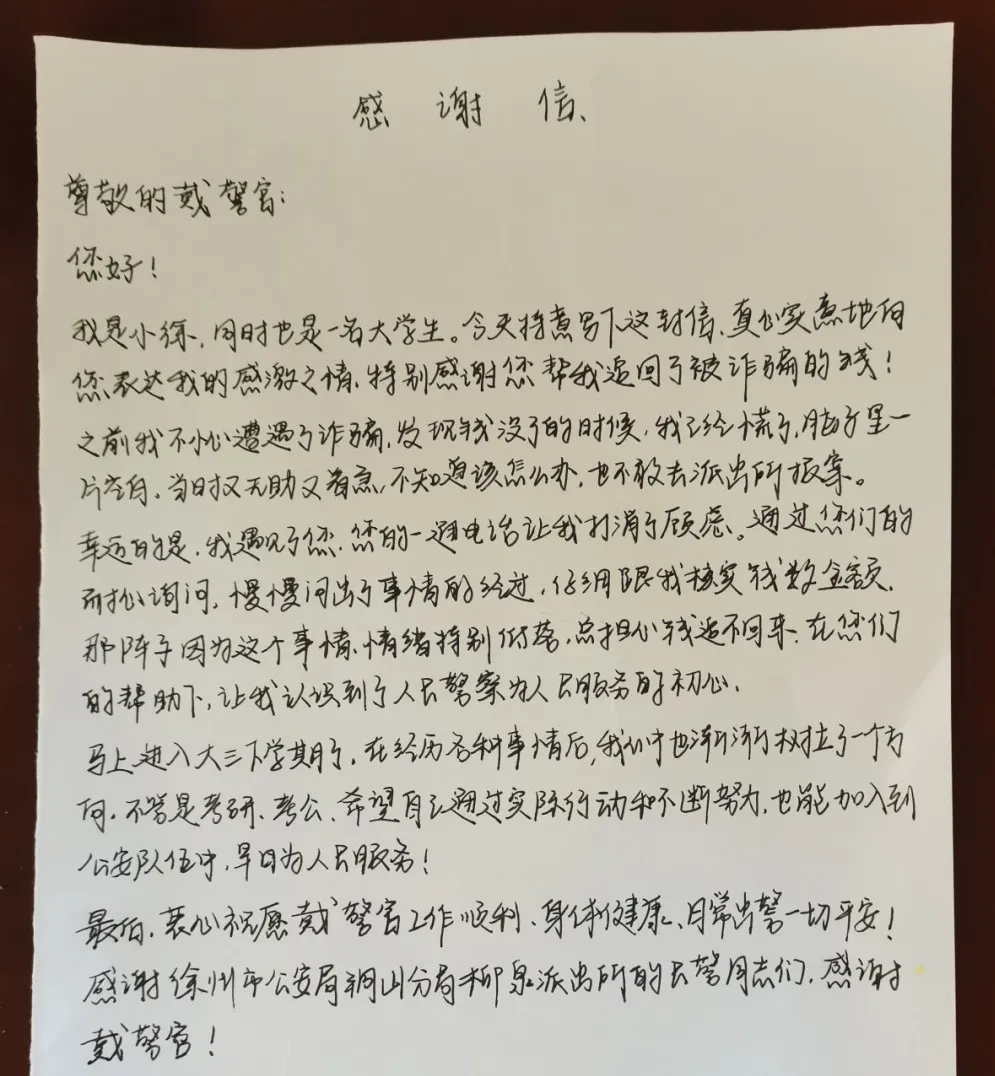 感谢信
尊敬的戴警官：
您好！
我是小徐，同时也是一名大学生。今天特意写下这封信，真心实意地向
您表达我的感激之情，特别感谢您帮我追回了被诈骗的钱！
之前我不小心遭遇了诈骗，发现钱没了的时候，我已经慌了，脑子里一
片空白，当时又无助又着急，不知道该怎么办，也不敢去派出所报案。
幸运的是，我遇见了您，您的一通电话让我打消了顾虑。通过您们的
耐心询问，慢慢问出了事情的经过，仔细跟我核实钱数金额，
那阵子因为这个事情，情绪特别低落，总担心钱追不回来，在您们
的帮助下，让我认识到了人民警察为人民服务的初心，
马上进入大三下学期了，在经历各种事情后，我心中也渐渐树立了一个方
向，不管是考研、考公、希望自己通过实际行动和不断努力，也能加入到
公安队伍中，早日为人民服务！
最后，衷心祝愿戴警官工作顺利、身体健康、日常出警一切平安！
感谢徐州市公安局铜山分局柳泉派出所的民警同志们，感谢
戴警官！